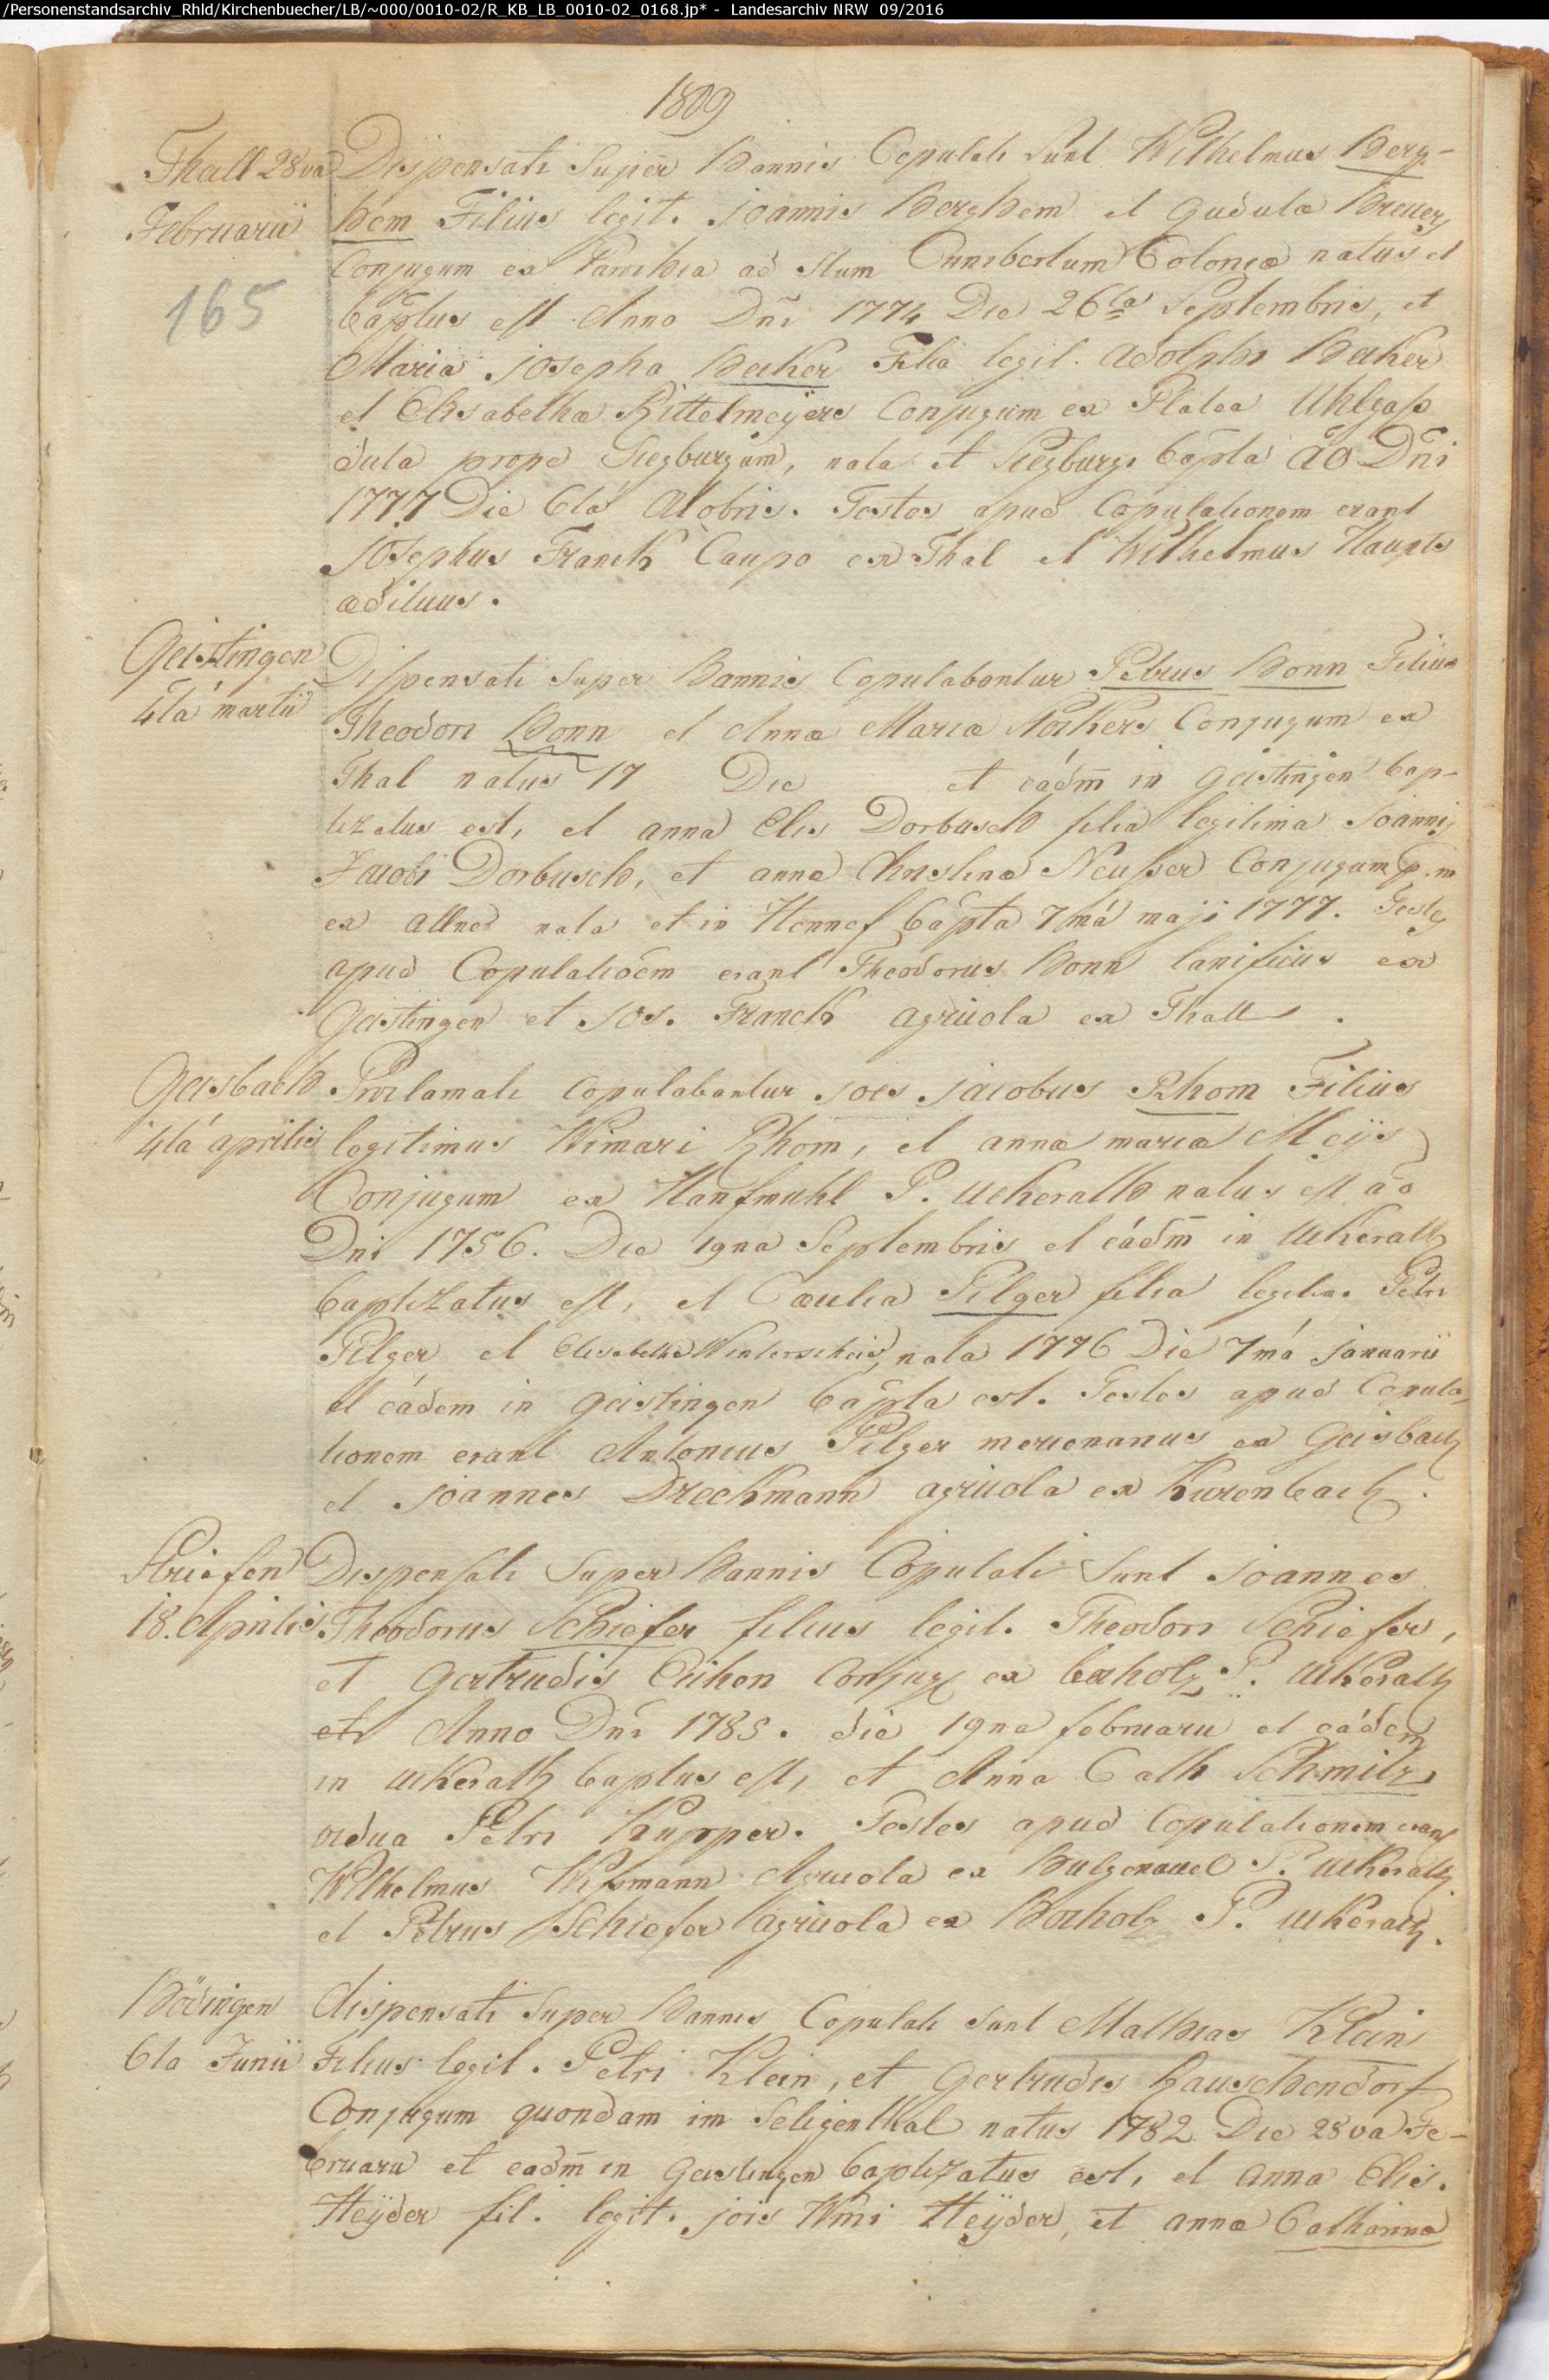 /Personenstandsarchiv_Rhld/Kirchenbuecher/LB/~000/0010-02/R_KB_LB_0010-02_0168.jp* - Landesarchiv NRW 09/2016
1809
Thall 28va
Februarii
165
Dispensati Super Bannis Copulati sunt Wilhelmus Berg-
hem Filius legit. Joannis Berghem et Gudulæ Breuers
Conjugum ex Parochia ad Stum Cunibertum Coloniæ natus et
baptus est Anno Dñi 1774 Die 26ta Septembris, et
Maria Josepha Becker Filia legit. Adolphi Becker
et Elisabethæ Rittelmeÿers Conjugum ex Platea Uhlgaß
dicta prope Siegburgum, nata et Siegburgi bapta ão Dñi
1777 Die 6ta Octobris. Testes apud Copulationem erant
Josephus Franck Caupo ex Thal et Wilhelmus Haupts
ædituus.
Geistingen
4tá martii
Dispensati Super Bannis Copulabantur Petrus Bonn Filius
Theodori Bonn et Annæ Mariæ Conjugum ex
Thal natus 17 Die et eádm̃ in Geistingen bap-
tizatus est, et anna Elis Dorbusch filia legitima Joannis
Jacobi Dorbusch, et anna Christina Neußer Conjugum p. m
ex Allner nata et in Hennef bapta 7má maji 1777. Testes
apud Copulatioem erant Theodorus Bonn lanificius ex
Geistingen et Jos. Franck agricola ex Thall.
Geisbach
4tá aprilis
Proclamati copulabantur Joes Jacobus Rhom Filius
legitimus Wimari Rhom, et annæ mariæ Meÿs
Conjugum ex Hanfmuhl P. Uckerath natus est aõ
Dni 1756. Die 19na Septembris et eádm̃ in Uckerath
baptizatus est, et Cæcilia Pilger filia legitim. Petri
Pilger et Elisabetha Winterscheid, nata 1776 Die 7má januarii
et eádem in Geistingen bapta est. Testes apud Copula-
tionem erant Antonius Pilger mercenarius ex Geisbach
et Joannes Dreckmann agricola ex Kurenbach.
Striefen
18. Aprilis
Dispensati Super Bannis Copulati Sunt Joannes
Theodorus Schiefer filius legit. Theodori Schiefer,
et Gertrudis Eichen Conjug ex Bocholz P. Uckerath
et Anno Dñi 1785. die 19na februarii et eádem
in Uckerath baptus est, et Anna Cath Schmitz
vidua Petri Kupper. Testes apud Copulationem erant
Wilhelmus Wißmann Agricola ex Bulgenauel P. Uckerath
et Petrus Schiefer agricola ex Bocholz P. Uckerath.
Bödingen
6ta Junii
dispensati Super Bannis Copulati Sunt Mathias Klein
Filius legit. Petri Klein, et Gertrudis Hauschendorf
Conjugum quondam im Seligenthal natus 1782 Die 28va Fe-
bruarii et eadm̃ in Geistingen baptizatus est, et Anna Elis.
Heÿder fil. legit. jois Wmi Heÿder, et annæ Catharinæ